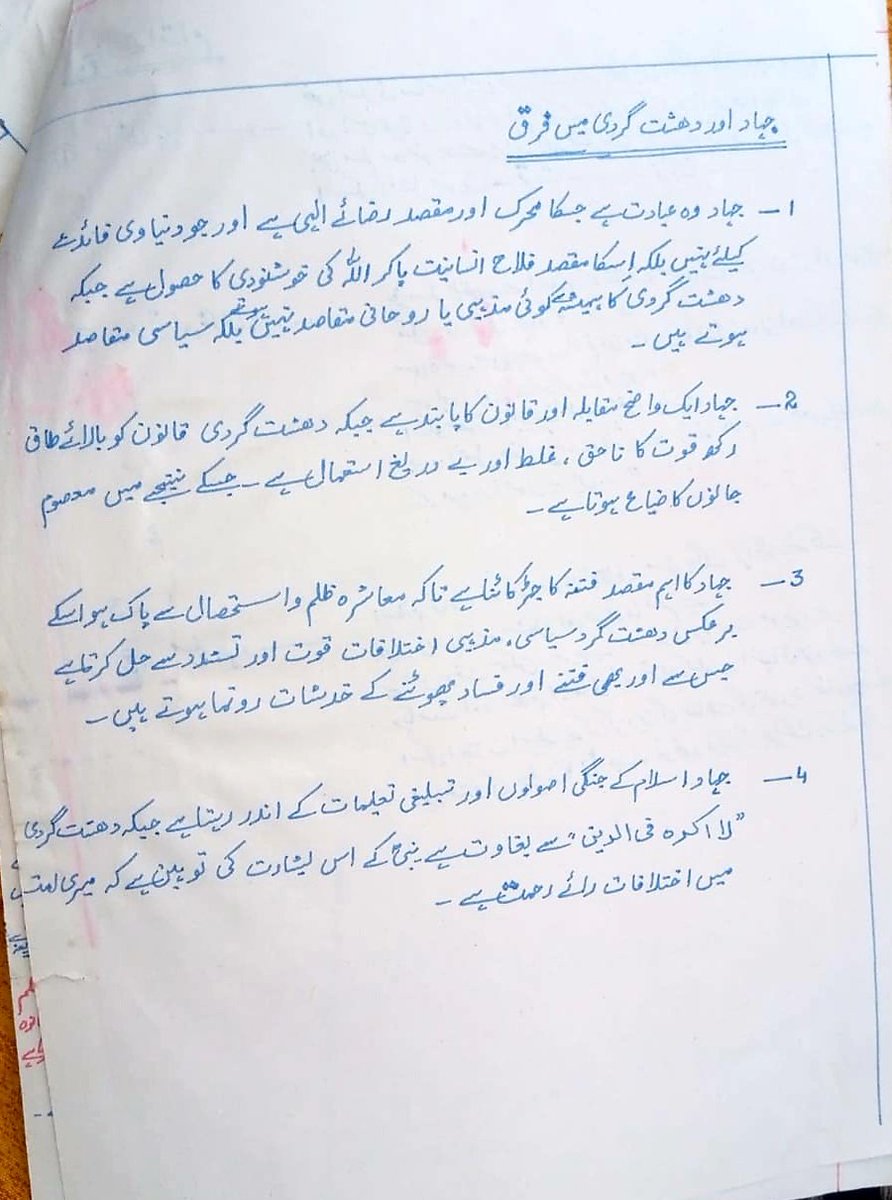 جہاد اور دھشت گردی میں فرق
1 – جہاد وہ عبادت ہے جسکا محرک اور مقصد رضائے الہی ہے اور جو دنیاوی فائدے
کیلئے نہیں بلکہ اسکا مقصد فلاح انسانیت پاکر اللہ کی خوشنودی کا حصول ہے جبکہ
دھشت گردی کا ہمیشہ کوئی مذہبی یا روحانی مقاصد نہیں ہوتے بلکہ سیاسی مقاصد
ہوتے ہیں ۔
2 – جہاد ایک واضح مقابلہ اور قانون کا پابند ہے جبکہ دھشت گردی قانون کو بالائے طاق
رکھ قوت کا ناحق ، غلط اور بے دریغ استعمال ہے ۔ جسکے نتیجے میں معصوم
جانوں کا ضیاع ہوتا ہے ۔
3 – جہاد کا اہم مقصد فتنہ کا جڑ کاٹنا ہے تاکہ معاشرہ ظلم و استحصال سے پاک ہو اسکے
برعکس دھشت گرد سیاسی ، مذہبی اختلافات قوت اور تشدد سے حل کرتا ہے
جس سے اور بھی فتنے اور فساد پھوٹنے کے خدشات رونما ہوتے ہیں ۔
4 – جہاد اسلام کے جنگی اصولوں اور تبلیغی تعلیمات کے اندر رہتا ہے جبکہ دھشت گردی
"لا اکرہ فی الدین" سے بغاوت ہے نبیؐ کے اس بشارت کی توہین ہے کہ میری امت
میں اختلافات رائے رحمت ہے ۔